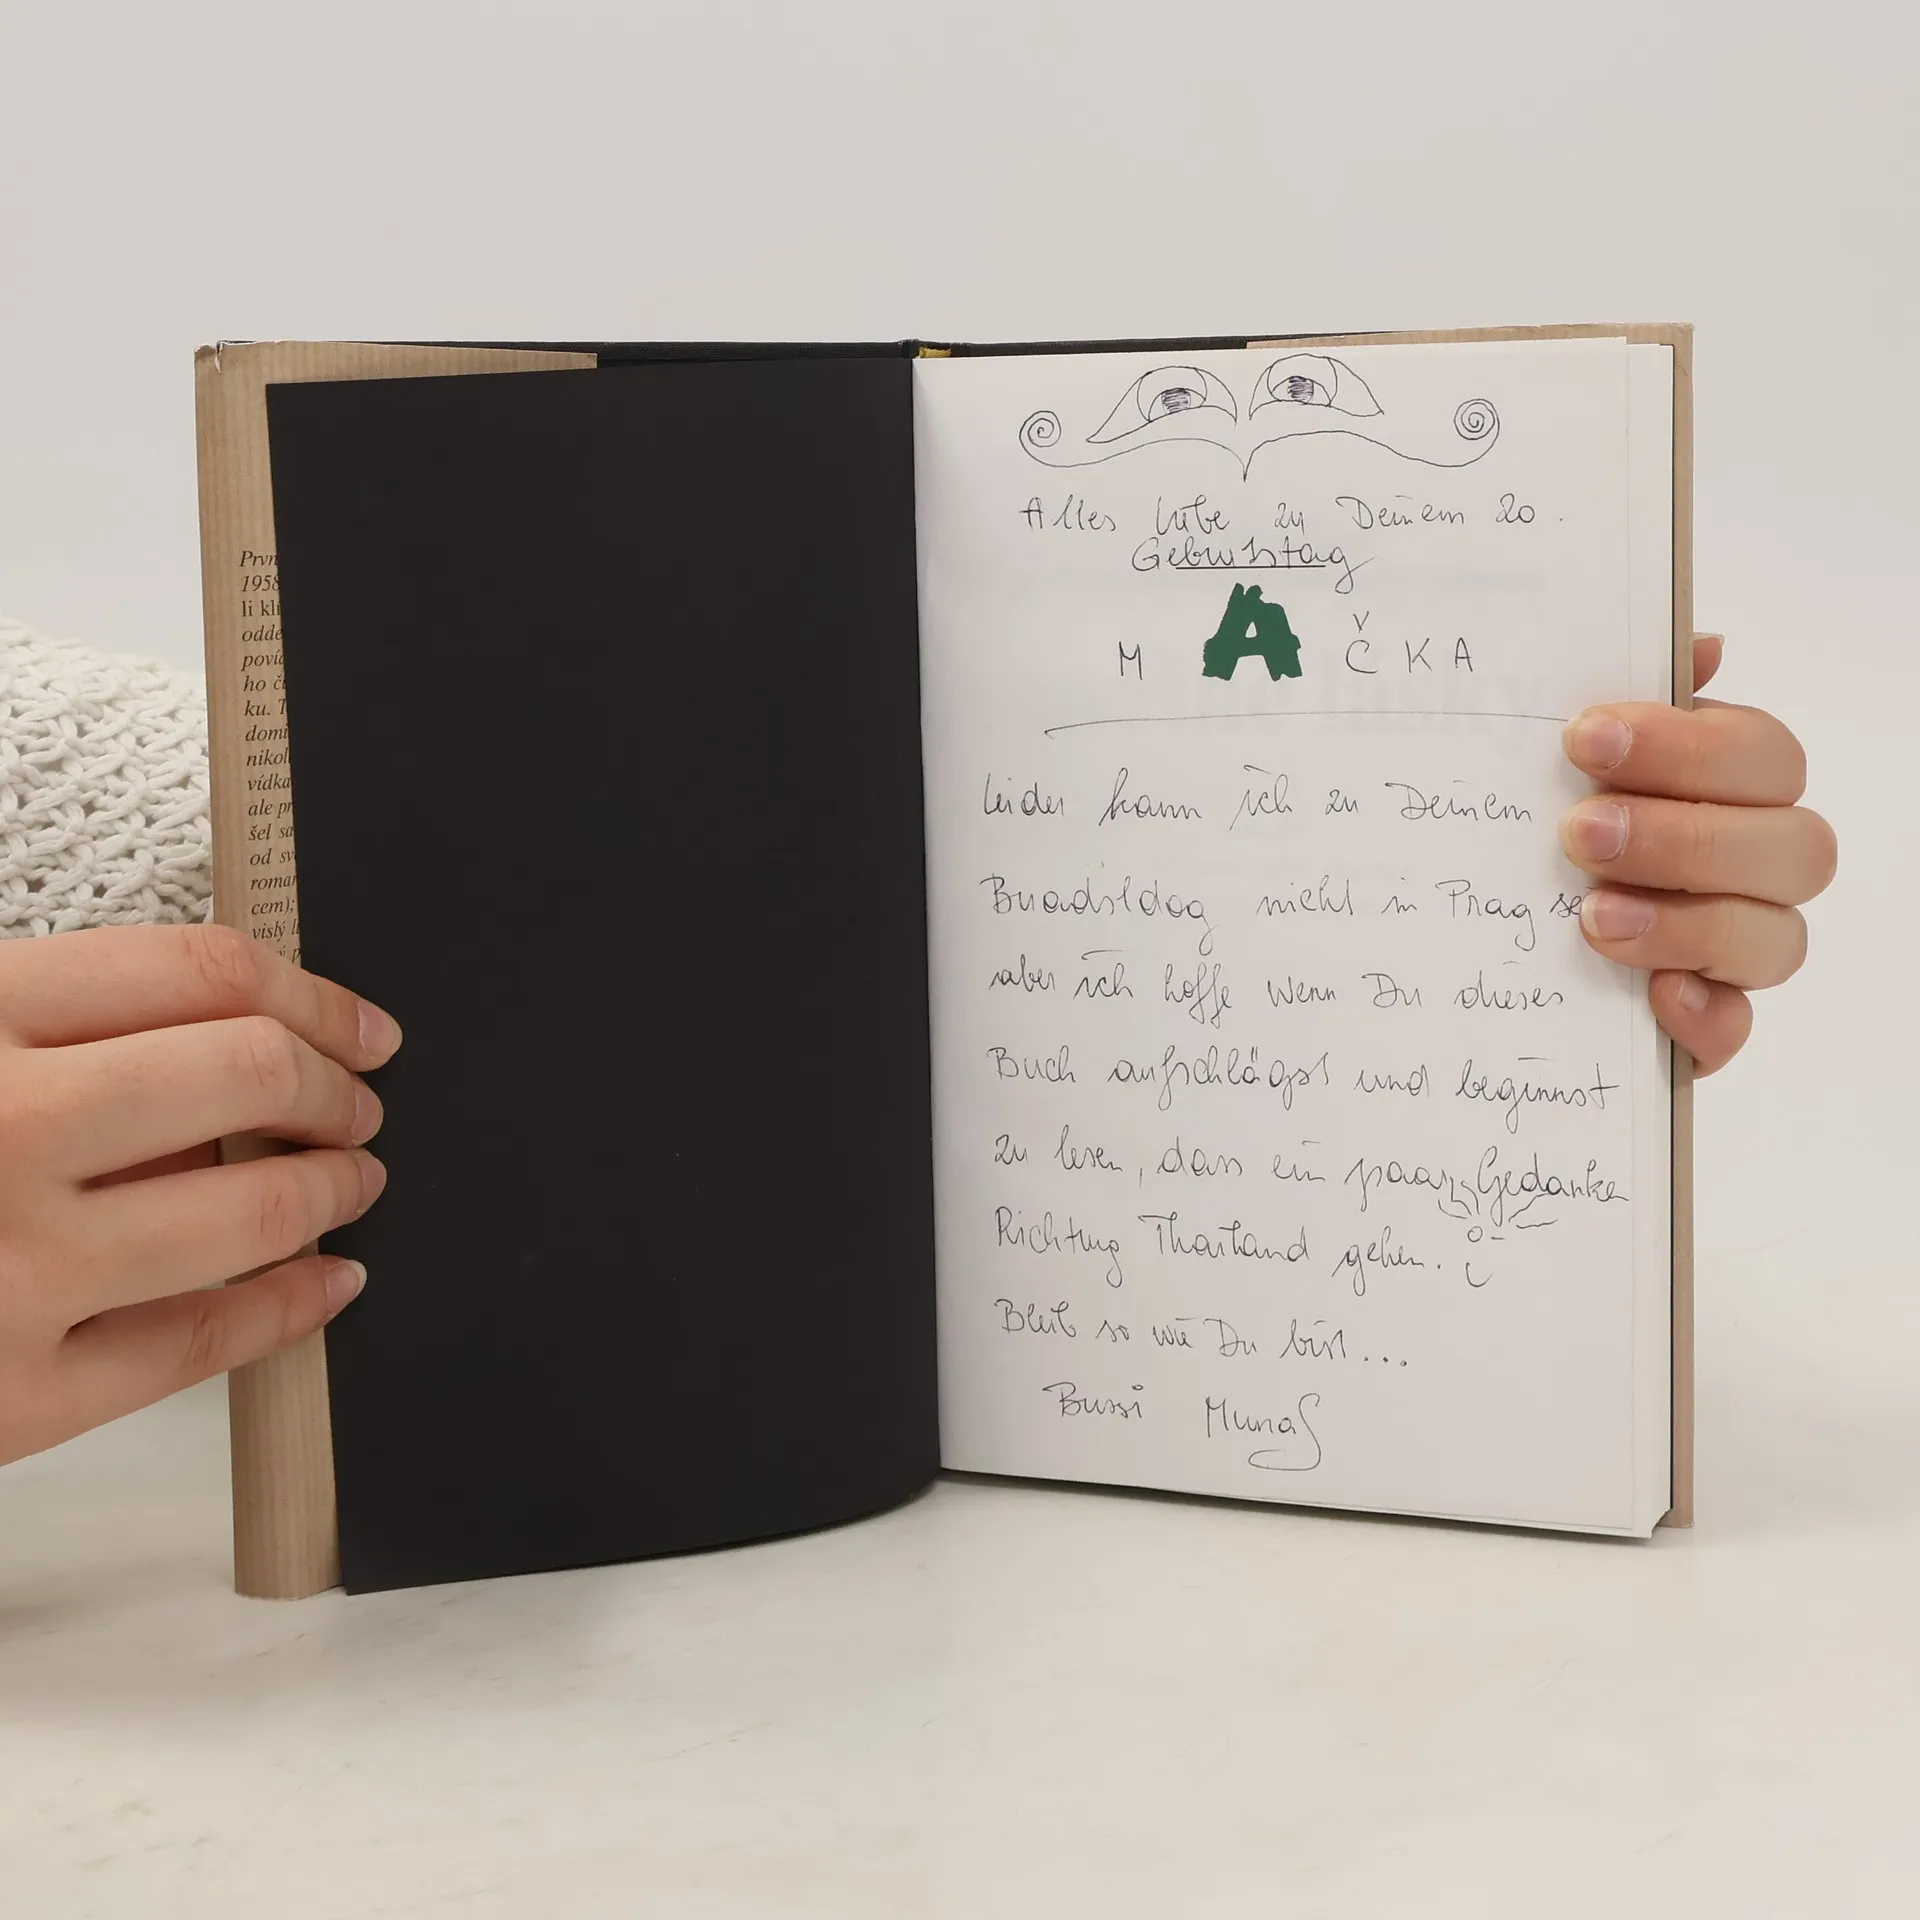 První
1958
li kli
odde
poví
ho č
ku. T
domi
nikol
vídka
ale pr
šel sa
od sv
roman
cem);
vislý l
ý p
Alles Liebe zu Deinem 20.
Geburtstag
M A Č K A
Leider kann ich zu Deinem
Buadsldog nicht in Prag se
aber ich hoffe wenn Du dieses
Buch aufschlägst und beginnst
zu lesen, dass ein paar Gedanken
Richtung Thailand gehen.
Bleib so wie Du bist...
Bussi